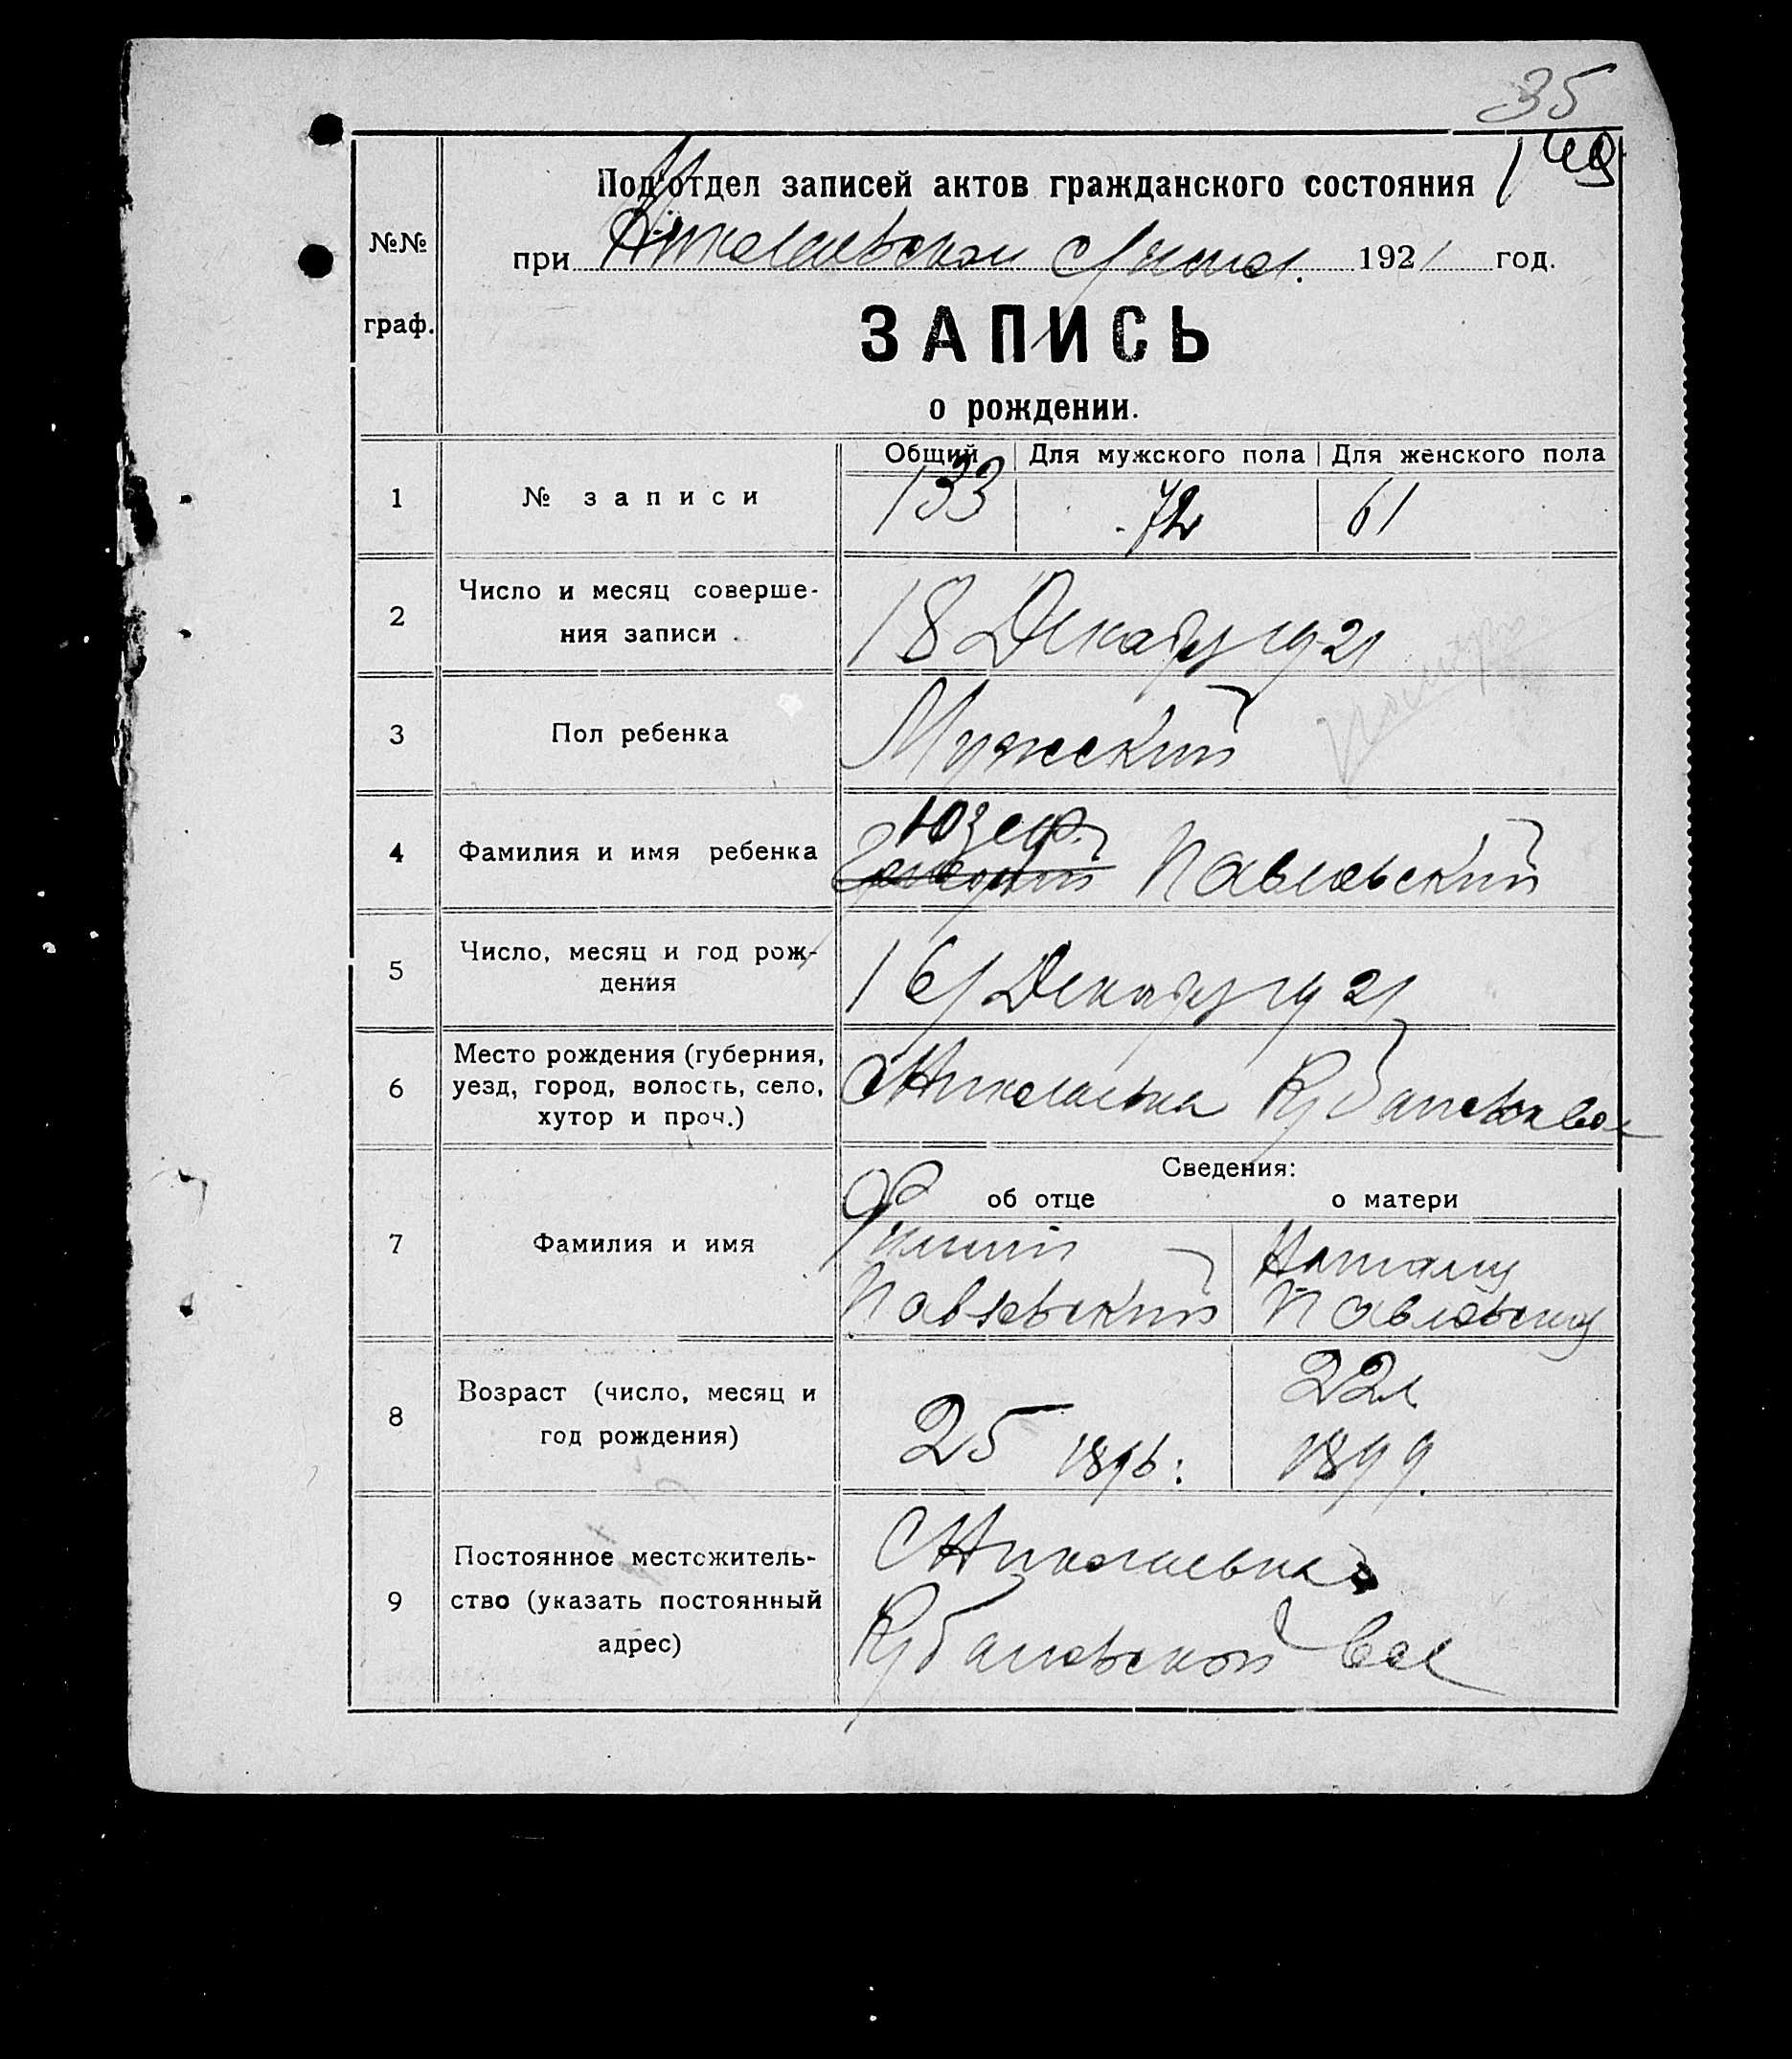 35
149
Под'отдел записей актов гражданского состояния
№№
при Николаевском 1921 год.
граф.
ЗАПИСЬ
о рождении.
Общий Для мужского пола Для женского пола
1 № записи 133 72 61
2 Число и месяц соверше-
ния записи 18 Декабря 1921
3 Пол ребенка Мужеский
4 Фамилия и имя ребенка Юзеф Павловский
5 Число, месяц и год рож-
дения 16/ Декабря 1921
6 Место рождения (губерния,
уезд, город, волость, село,
хутор и проч.) С Николаевка Кубановск вол
Сведения:
об отце о матери
7 Фамилия и имя
Филип Наталия
Павловский Павловская
8 Возраст (число, месяц и
год рождения)
25 1896: 22л
1899.
9 Постоянное местожитель-
ство (указать постоянный
адрес)
С Николаевка
Кубановской вол